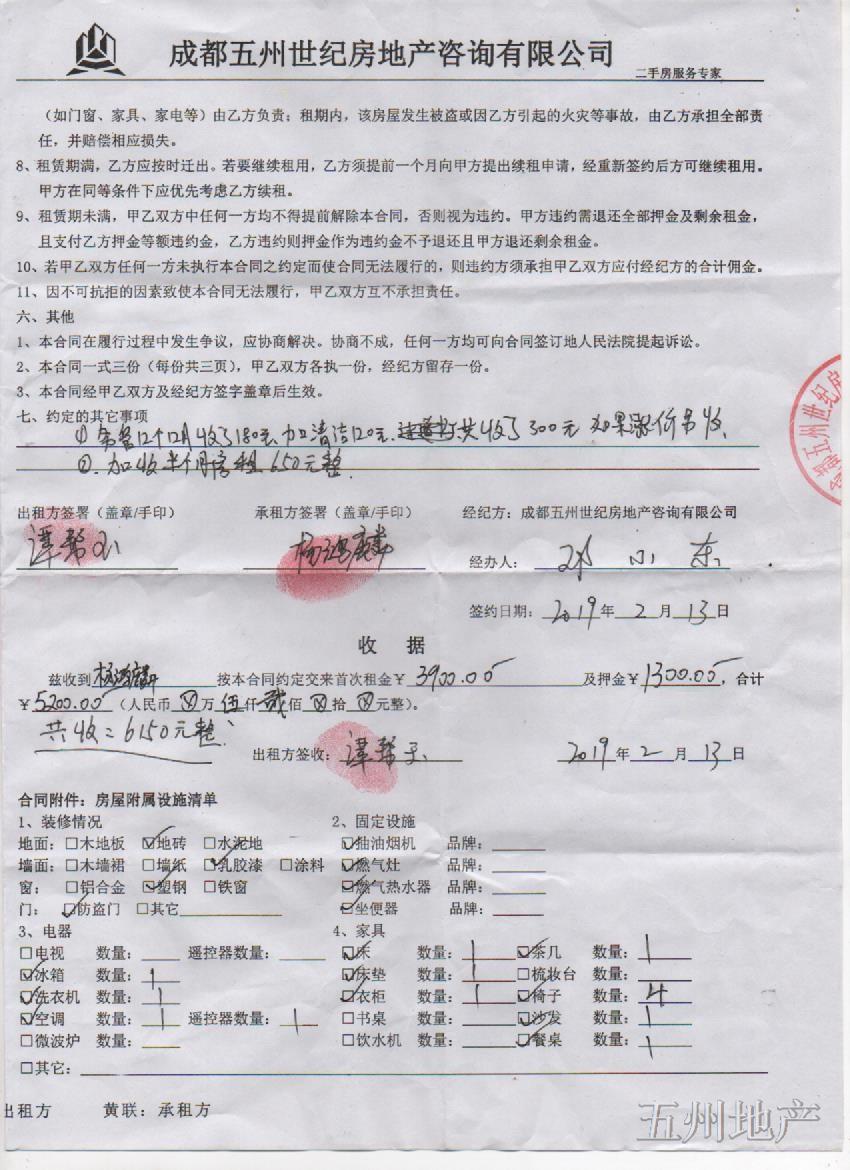 成都五州世纪房地产咨询有限公司
二手房服务专家
（如门窗、家具、家电等）由乙方负责；租期内，该房屋发生被盗或因乙方引起的火灾等事故，由乙方承担全部责
任，并赔偿相应损失。
8、租赁期满，乙方应按时迁出。若要继续租用，乙方须提前一个月向甲方提出续租申请，经重新签约后方可继续租用。
甲方在同等条件下应优先考虑乙方续租。
9、租赁期未满，甲乙双方中任何一方均不得提前解除本合同，否则视为违约。甲方违约需退还全部押金及剩余租金，
且支付乙方押金等额违约金，乙方违约则押金作为违约金不予退还且甲方退还剩余租金。
10、若甲乙双方任何一方未执行本合同之约定而使合同无法履行的，则违约方须承担甲乙双方应付经纪方的合计佣金。
11、因不可抗拒的因素致使本合同无法履行，甲乙双方互不承担责任。
六、其他
1、本合同在履行过程中发生争议，应协商解决。协商不成，任何一方均可向合同签订地人民法院提起诉讼。
2、本合同一式三份（每份共三页），甲乙双方各执一份，经纪方留存一份。
3、本合同经甲乙双方及经纪方签字盖章后生效。
七、约定的其它事项
① 12个月收了180元、加清洁120元、共收了300元 如果 收、
②、加收半个月房租650元整.
出租方签署（盖章/手印） 承租方签署（盖章/手印） 经纪方：成都五州世纪房地产咨询有限公司
谭帮玉 杨鸿麟 经办人： 小东
签约日期：2019年2月13日
收 据
兹收到杨鸿麟按本合同约定交来首次租金￥3900.00及押金￥1300.00，合计
￥5200.00（人民币 ⊗万伍仟贰佰⊗拾⊗元整）。
共收：6150元整.
出租方签收：谭帮玉 2019年2月13日
合同附件：房屋附属设施清单
1、装修情况 2、固定设施
地面：□木地板 ☑地砖 □水泥地 ☑抽油烟机 品牌：
墙面：□木墙裙 □墙纸 ☑乳胶漆 □涂料 ☑燃气灶 品牌：
窗：□铝合金 ☑塑钢 □铁窗 ☑燃气热水器 品牌：
门：☑防盗门 □其它 ☑坐便器 品牌：
3、电器 4、家具
□电视 数量： 遥控器数量： ☑床 数量：1 ☑茶几 数量：1
☑冰箱 数量：1 ☑床垫 数量：1 □梳妆台 数量：
☑洗衣机 数量：1 ☑衣柜 数量：1 ☑椅子 数量：4
☑空调 数量：1 遥控器数量：1 □书桌 数量： ☑沙发 数量：1
□微波炉 数量： □饮水机 数量： ☑餐桌 数量：1
□其它：
出租方 黄联：承租方
五州地产
五州世纪房